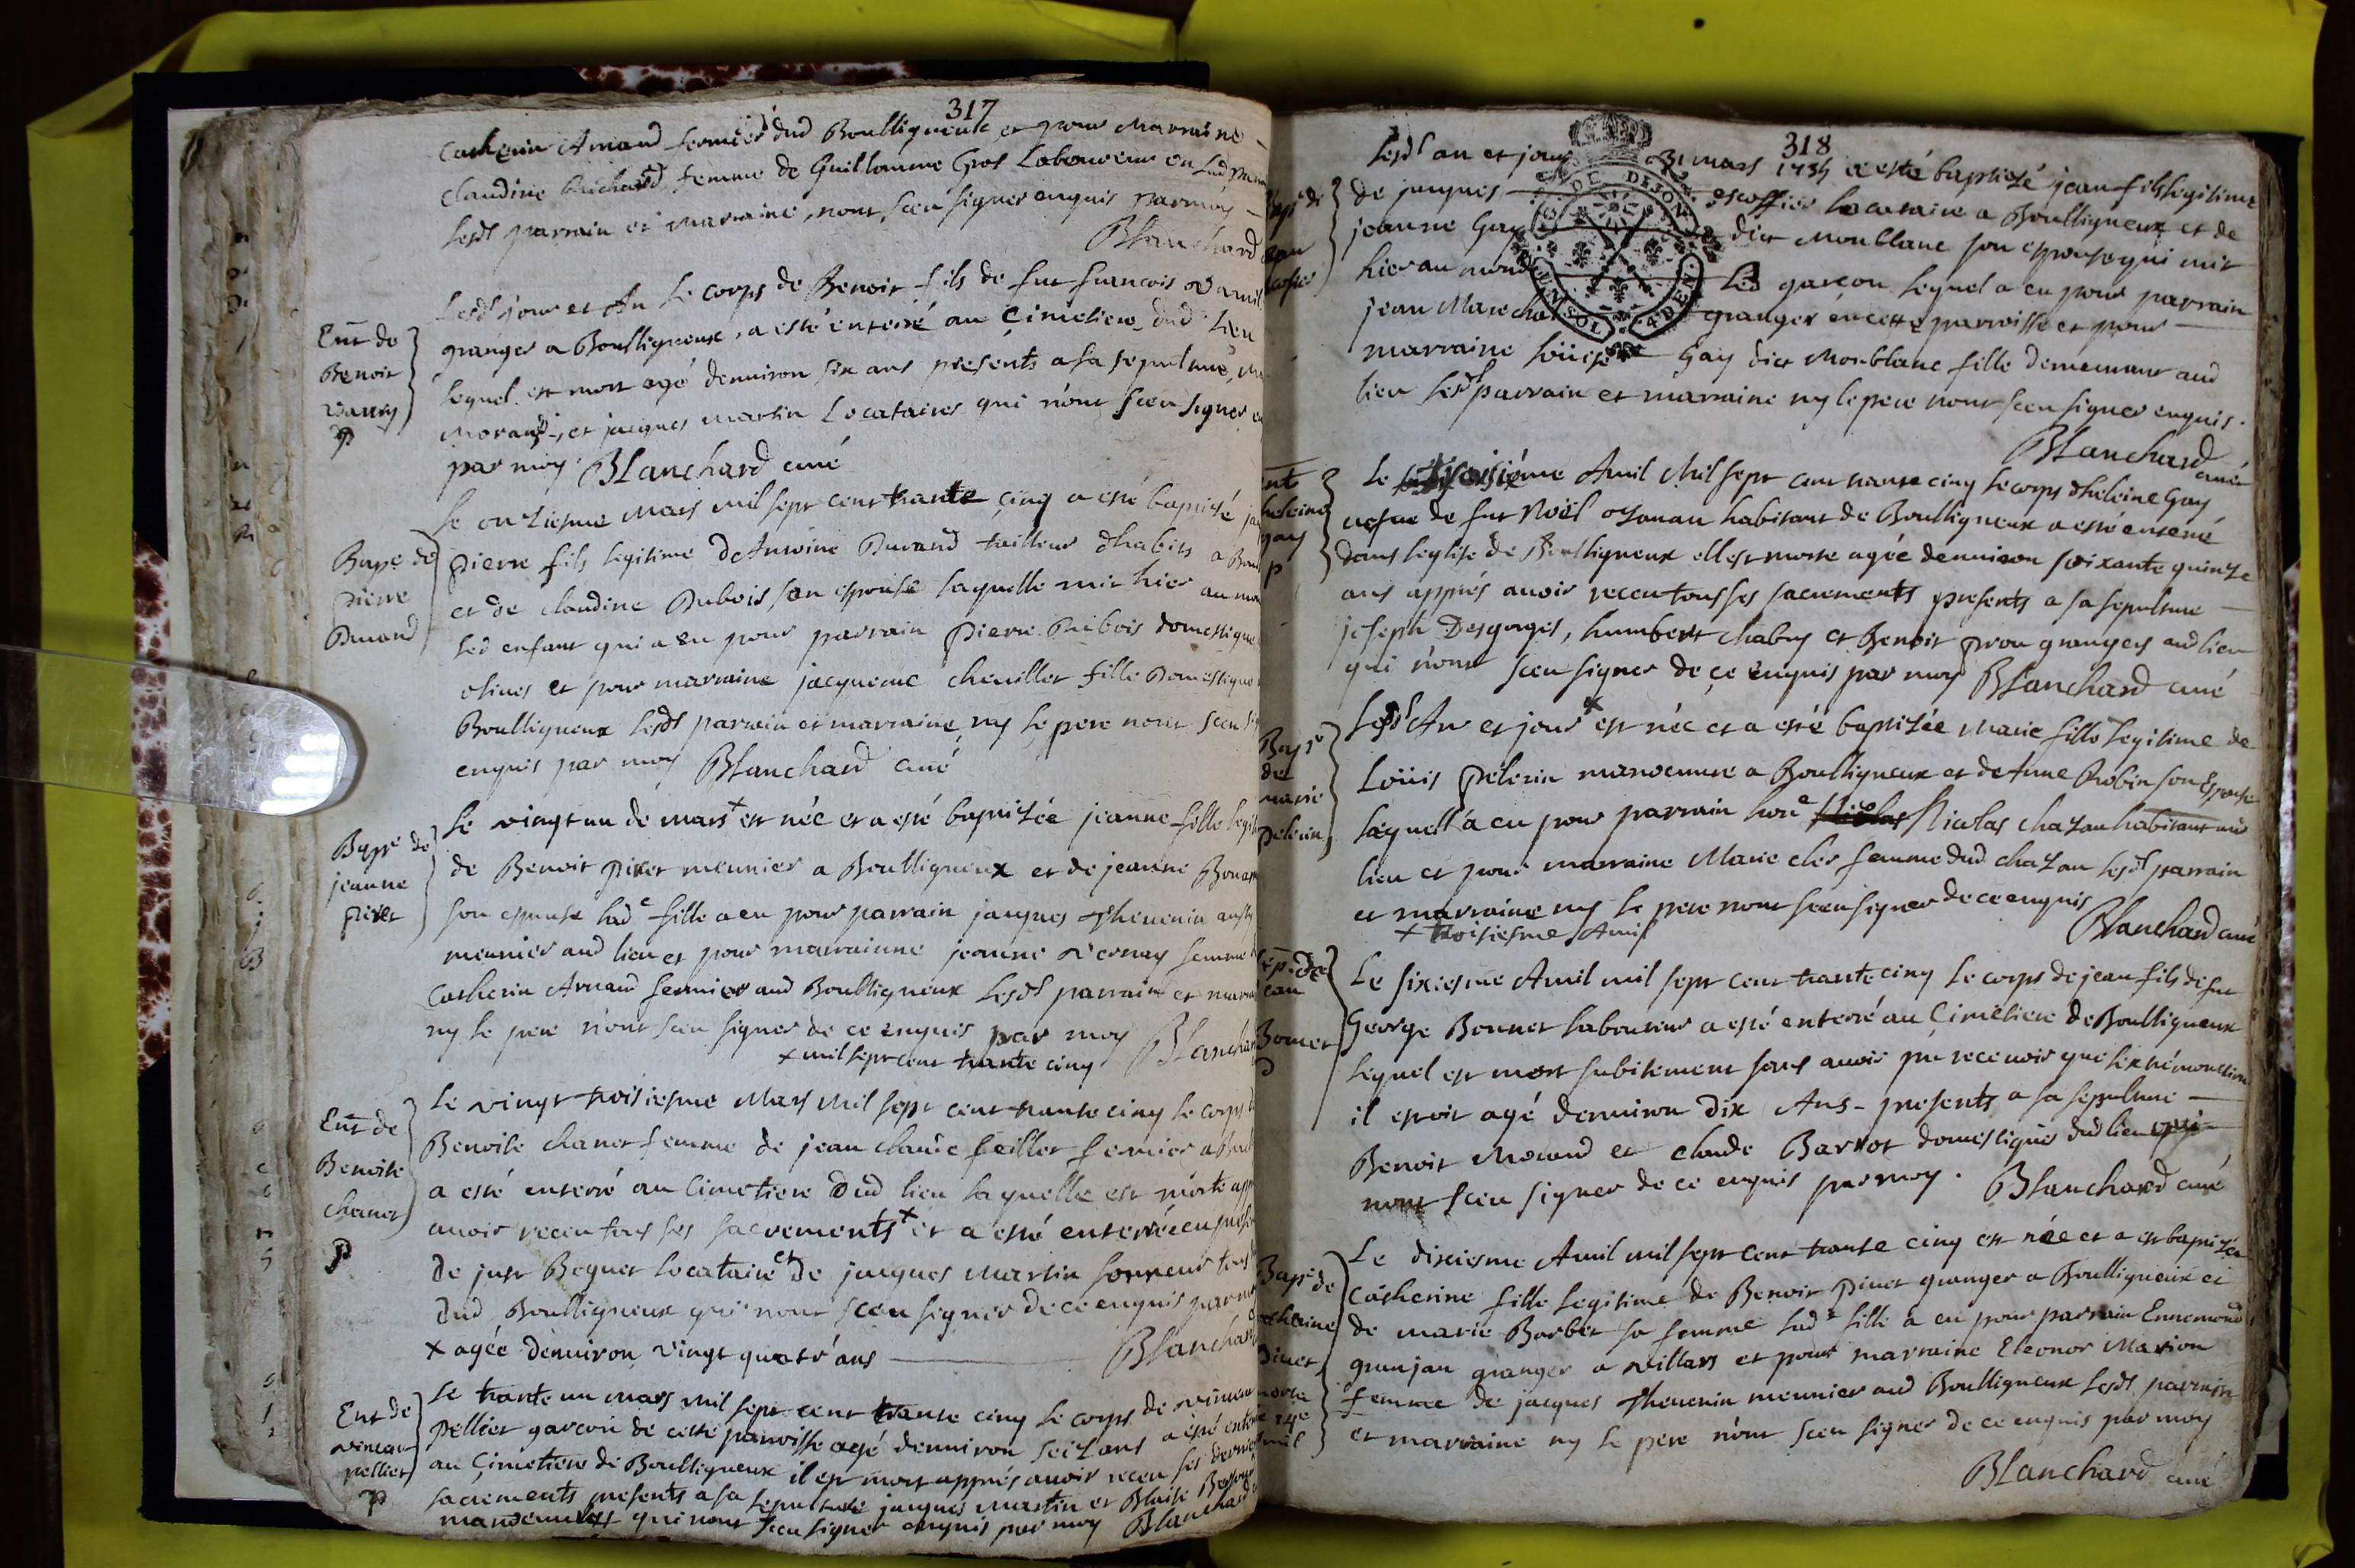 317
Catherin Arnaud fermier dud Boulligneux et pour Marraine
Claudine Guichard femme de Guillaume Gros Laboureur en lad
Lesdt parrain et marraine nont sceu signer enquis par moy
Blanchard
Ent de
Benoit
p
Lesdt jour et An le corps de Benoit fils de fut francois
granger a Boulligneux, a esté enterré au Cimetiere dud Lieu
lequel est mort agé denuiron six ans presents a sa sepulture
Morand, et jacques martin Locataires qui n'ont sceu signer
par moy. Blanchard curé
Bapt de
Pierre
Durand
Le onziesme Mars mil sept cent trante cinq a esté baptisé
Pierre fils legitime de Antoine Durand tailleur dhabits a
et de claudine Dubois son espouse laquelle mit hier au
led enfant qui a eu pour parrain Pierre Dubois domestique
et pour marraine jacqueme cheuillet fille Domestique
Boulligneux Lesdt parrain et marraine ny le pere nont sceu
enquis par moy Blanchard curé
Bapt de
jeanne
Piuet
Le vingt un de mars x est née et a esté baptisée jeanne fille
de Benoit Piuet meunier a Boulligneux et de jeanne
son espouse lade fille a eu pour parrain jacques Theuenin
meunier aud lieu et pour marrainne jeanne Vernay femme
Catherin Arnaud fermier aud Boulligneux Lesdt parrain et
ny le pere n'ont sceu signer de ce enquis par moy
x mil sept cent trante cinq Blanchard
Ent de
Benoite
chanet
p
Le vingt troisiesme Mars Mil sept cent trante cinq le corps
Benoite chanet femme de jean claude feillet fermier
a esté enterré au Cimetiere Dud lieu laquelle est morte
auoir receu tous ses sacrements x et a esté enterrée en
de just Beguet Locataire et de jacques Martin sonneur tous
dud Boulligneux qui nont sceu signer de ce enquis par
x agée denuiron vingt quatr'ans
Blanchard
Ent de
vincent
pellier
p
Le trante un mars mil sept cent trante cinq le corps de vincent
Pellier garcon de cette parroisse agé denuiron seize ans a esté
au Cimetiere de Boulligneux il est mort apprés auoir receu ses
sacrements presents a sa sepulture jacques Martin et Blaise
manoeuures qui nont sceu signer enquis par moy Blanchard
318
Lesdt an et jour 31 mars 1735 a esté baptisé jean fils legitime
de jacques escoffier locataire a Boulligneux et de
jeanne Gay dict Monblanc son espouse qui mit
hier au monde led garcon lequel a eu pour parrain
jean Marechal granger en cette parroisse et pour
marraine Loüise Gay dict Monblanc fille demeurant aud
lieu lesdt parrain et marraine ny le pere nont sceu signer enquis.
Blanchard curé
Le troisiéme Auril Mil sept cent trante cinq le corps dheleine Gay
uefue de fut Noël ozanau habitant de Boulligneux a esté enterré
dans leglise de Boulligneux elle est morte agée denuiron soixante quinze
ans apprés auoir receu tous ses sacrements presents a sa sepulture
joseph Desgorges, humbert chabry et Benoit Pron grangers aud lieu
qui n'ont sceu signer de ce enquis par moy Blanchard curé
Bapt
de
marie
Pelerin
Lesdt An et jour x est née et a esté baptisée Marie fille legitime de
Loüis Pelerin manoeuure a Boulligneux et de Anne Robin son Espouse
laquell'a eu pour parrain hone Nicolas chazau habitant aud
lieu et pour marraine Marie cler femme dud chazau lesdt parrain
et marraine ny le pere nont sceu signer de ce enquis
x troisiesme Auril
Blanchard curé
Le sixiesme Auril mil sept cent trante cinq le corps de jean fils de fut
George Bonnet laboureur a esté enterré au Cimetiere de Boulligneux
lequel est mort subitement sans auoir pu receuoir que lextrémonction
il estoit agé denuiron dix Ans - presents a sa sepulture
Benoit Morand et claude Barriot domestiques dud lieu qui
nont sceu signer de ce enquis par moy. Blanchard curé
Le dixiesme Auril mil sept cent trante cinq est née et a est baptisée
Catherine fille legitime de Benoit Piuet granger a Boulligneux et
de marie Barbet sa femme lade fille a eu pour parrain Ennemond
granjan granger a villars et pour marraine Eleonor Marion
femme de jacques Theuenin meunier aud Boulligneux Lesdt parrain
et marraine ny le pere n'ont sceu signer de ce enquis par moy
Blanchard curé